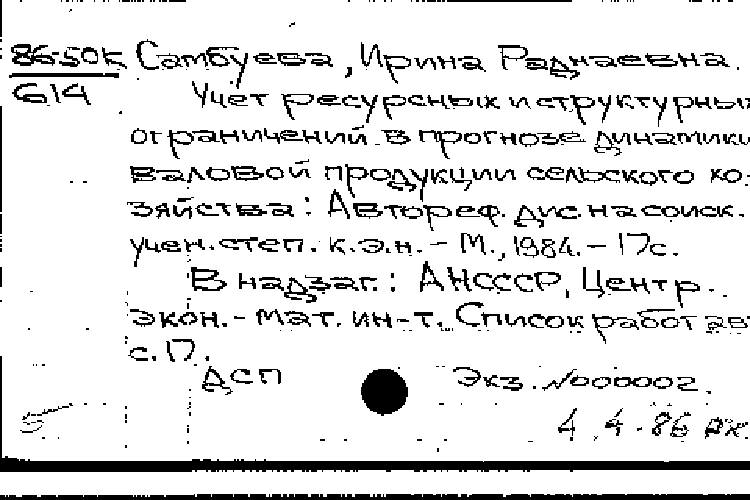 86-50К Самбуева, Ирина Раднаевна.
614 Учет ресурсных и структурных
ограничений в прогнозе динамики
валовой продукции сельского хо-
зяйства: Автореф. дис. на соиск.
учен. степ. к.э.н. - М., 1984. - 17с.
В надзаг.: АНСССР, Центр.
экон.-мат. ин-т. Список работ авт
с. 17.
ДСП Экз. №000002.
5 4.4.86